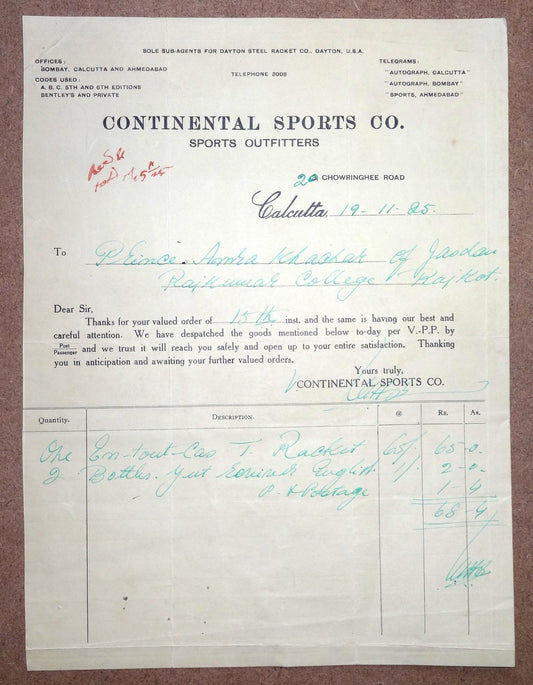 SOLE SUB-AGENTS FOR DAYTON STEEL RACKET CO., DAYTON, U.S.A.
OFFICES:
BOMBAY, CALCUTTA AND AHMEDABAD
CODES USED:
A. B. C. 5TH AND 6TH EDITIONS
BENTLEY'S AND PRIVATE
TELEPHONE 3008
TELEGRAMS:
"AUTOGRAPH, CALCUTTA"
"AUTOGRAPH, BOMBAY"
"SPORTS, AHMEDABAD"
CONTINENTAL SPORTS CO.
SPORTS OUTFITTERS
20 CHOWRINGHEE ROAD
Calcutta, 19-11-25.
To Prince Amra Khachar of Jasdan
Rajkumar College Rajkot.
Dear Sir,
Thanks for your valued order of 15th inst. and the same is having our best and
careful attention. We have despatched the goods mentioned below to-day per V.-P.P. by
Post
Passenger and we trust it will reach you safely and open up to your entire satisfaction. Thanking
you in anticipation and awaiting your further valued orders.
Yours truly,
CONTINENTAL SPORTS CO.
Quantity. DESCRIPTION. @ Rs. As.
One En-tout-Cas T. Racket 65/. 65-0.
2 Bottles. Gut English 1/. 2-0.
P. & Postage 1-4
68-4